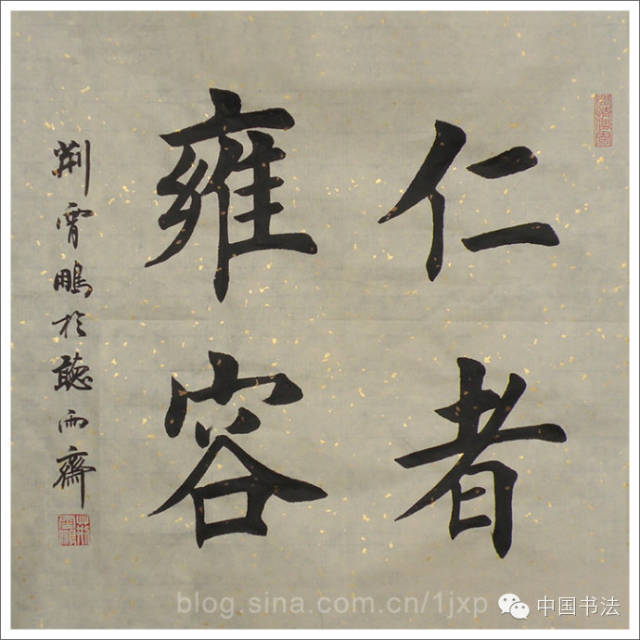 仁者
雍容
荆霄鹏於聽雨齋
blog.sina.com.cn/1jxp
中国书法